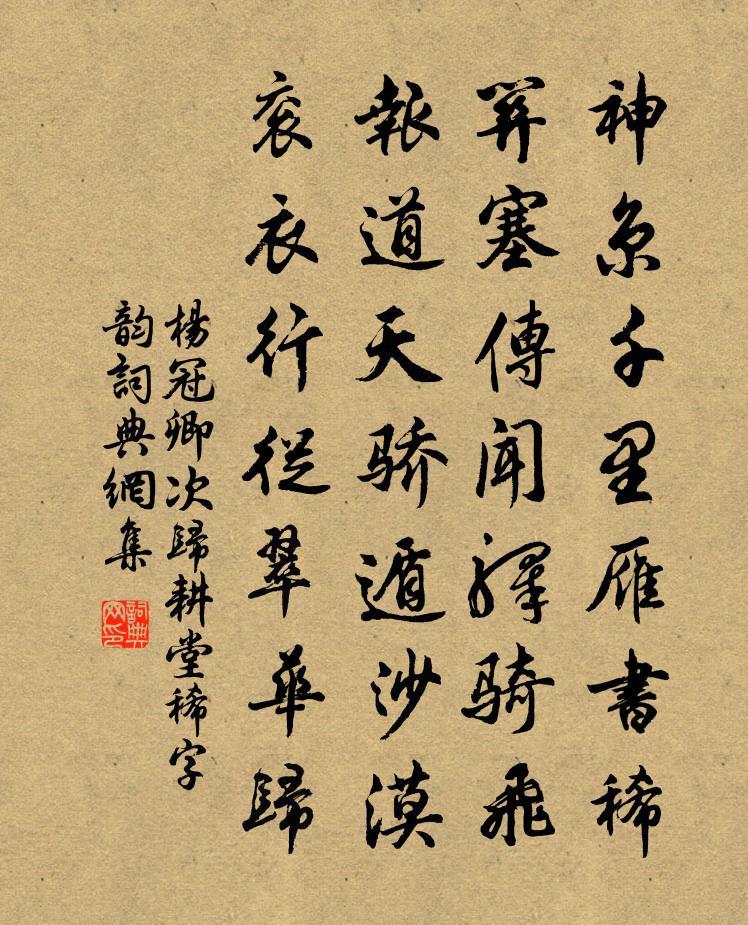 神京千里雁書稀
并塞傳聞驛騎飛
報道天驕遁沙漠
衮衣行從翠華歸
楊冠卿次歸耕堂稀字
韵詞典網集
詞典
网印